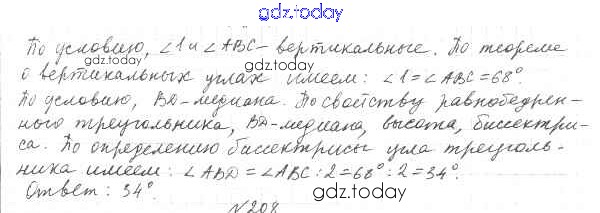 gdz.today
По условию, ∠1 и ∠ABC - вертикальные. По теореме
о вертикальных углах имеем: ∠1 = ∠ABC = 68°.
gdz.today
По условию, BD - медиана. По свойству равнобедрен-
ного треугольника, BD - медиана, высота, биссектри-
са. По определению биссектрисы угла треуголь-
ника имеем: ∠ABD = ∠ABC : 2 = 68° : 2 = 34°.
gdz.today
Ответ: 34°.
№208